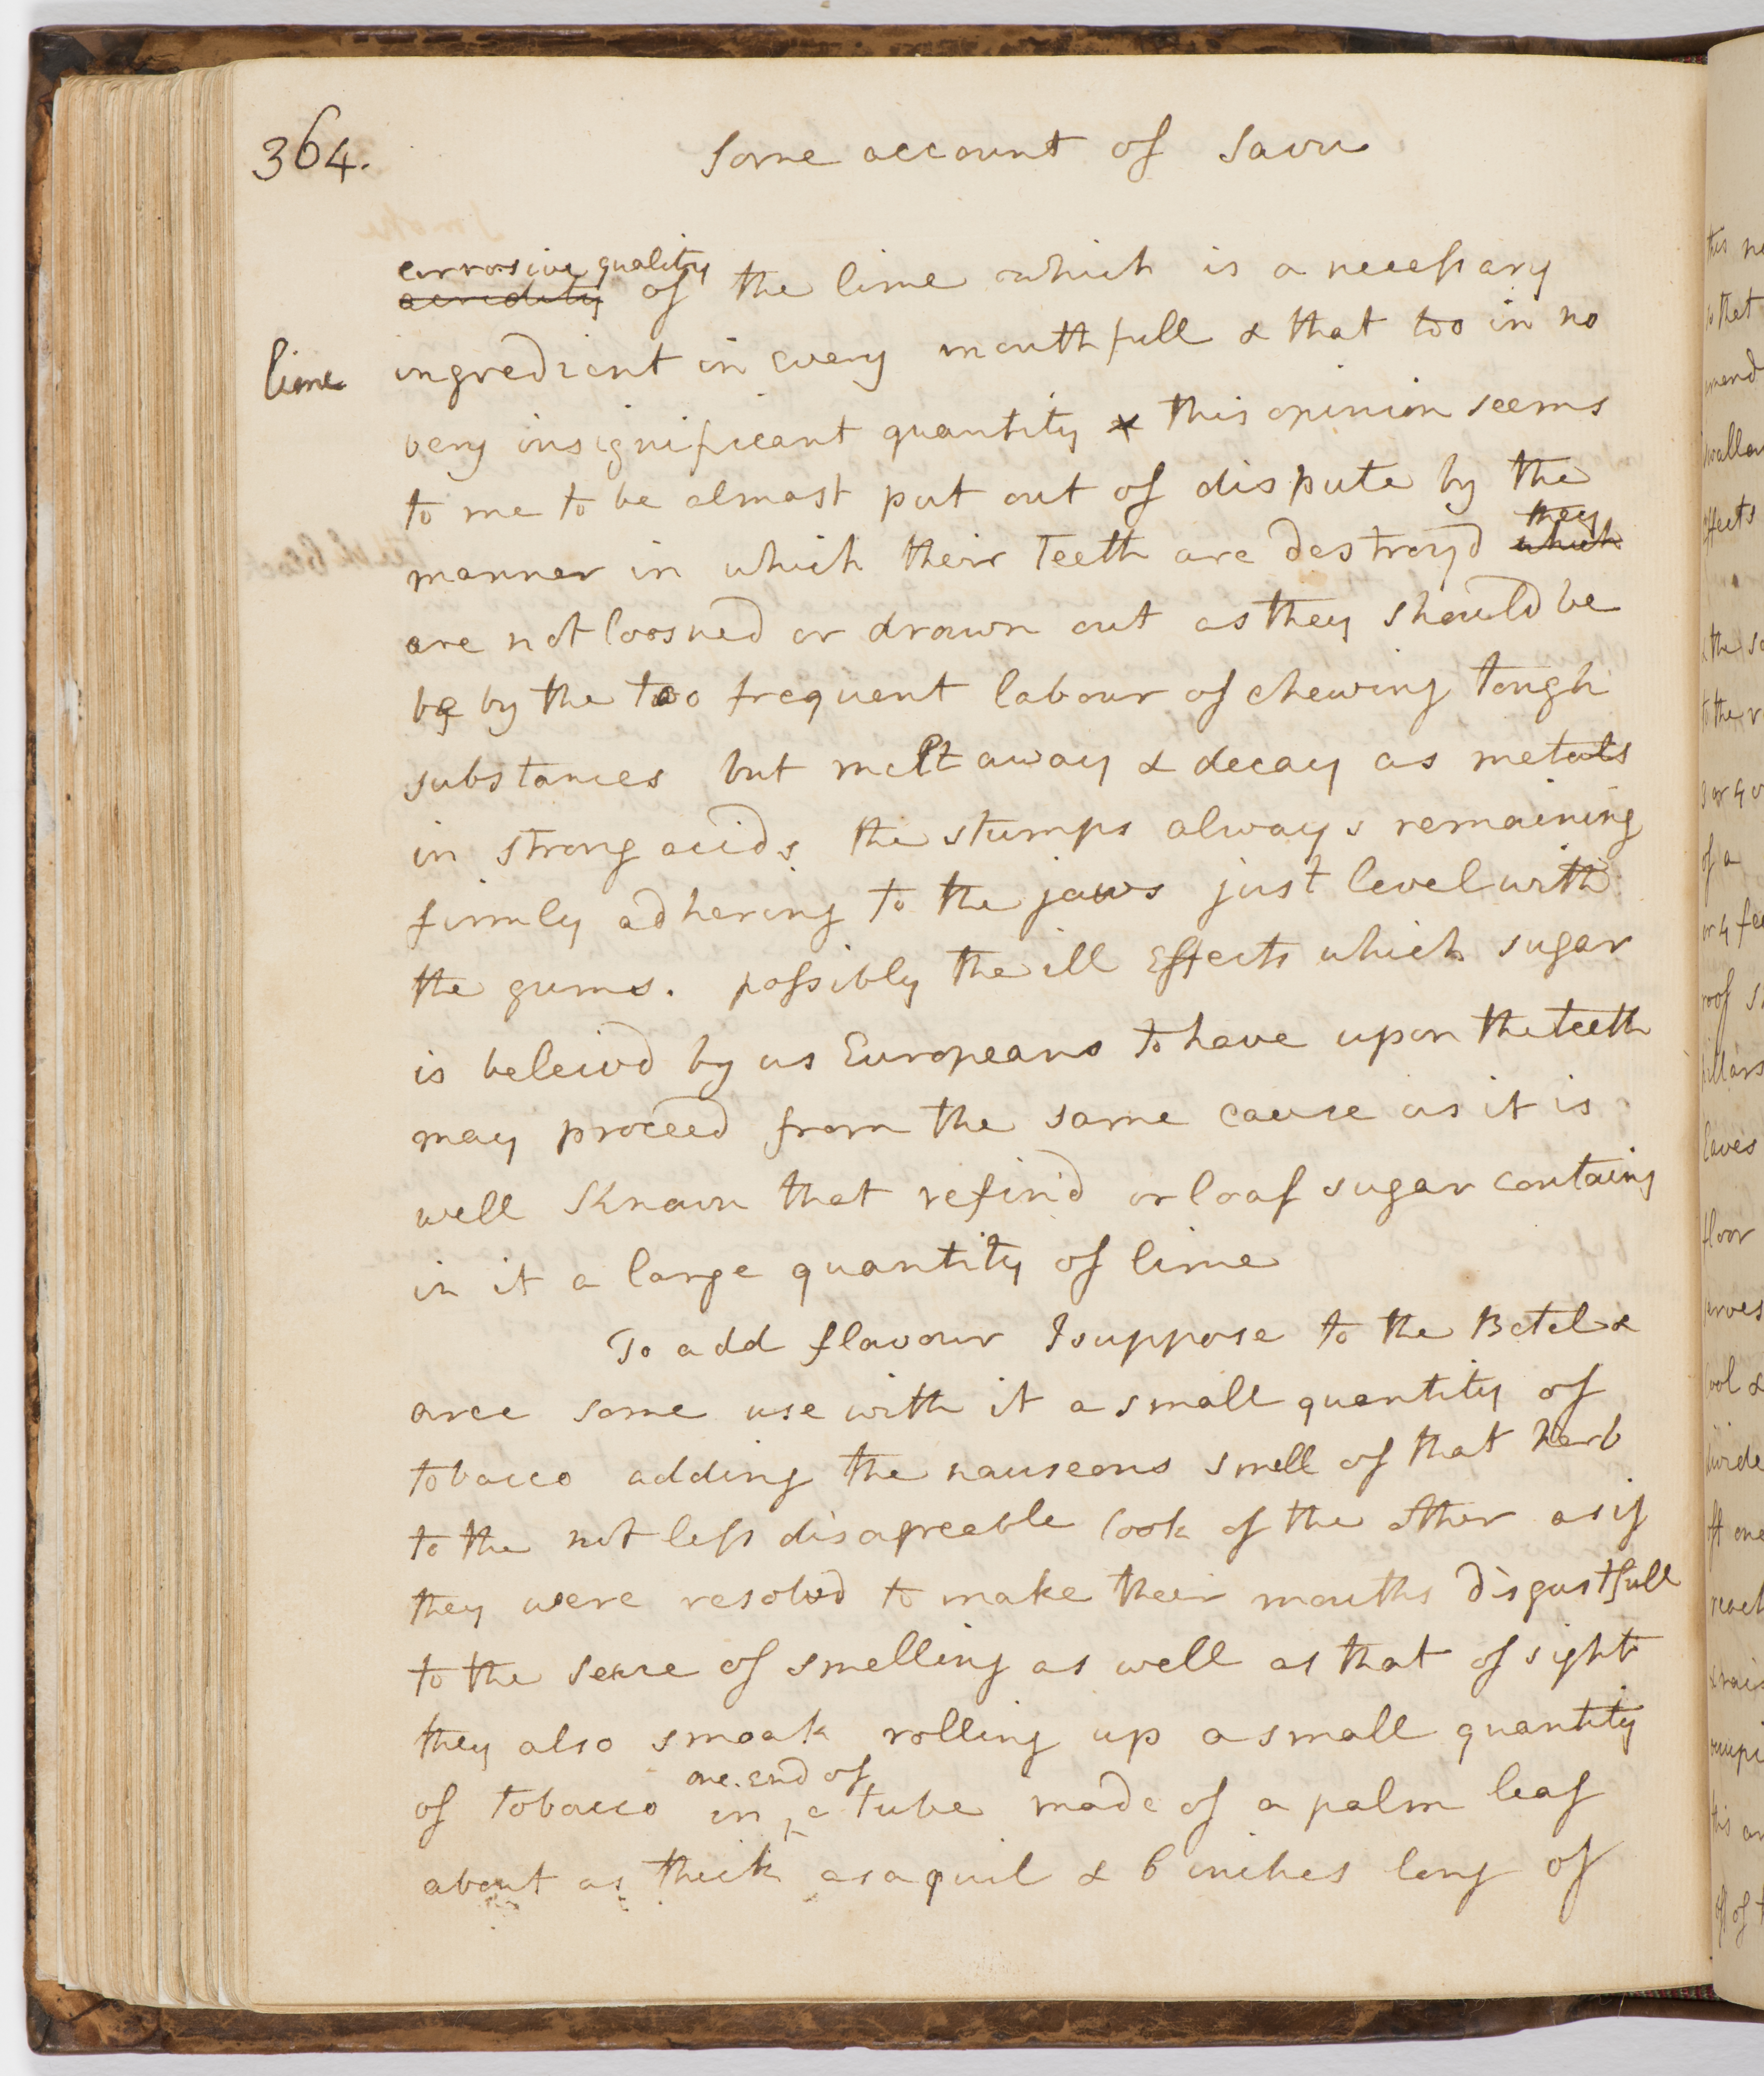 364.
Some account of Savu
corrosive quality
acridity of the lime which is a necessary
lime
ingredient in every mouthfull & that too in no
very insignificant quantity & this opinion seems
to me to be almost put out of dispute by the
they
manner in which their Teeth are destroyd which
are not loosned or drawn out as they should be
be by the too frequent labour of chewing tough
substances but melt away & decay as metals
in strong acids the stumps always remaining
firmly adhering to the jaws just level with
the gums. possibly the ill Effects which sugar
is beleivd by us Europeans to have upon the teeth
may proceed from the same cause as it is
well Known that refin'd or loaf sugar contains
in it a large quantity of lime
To add flavour I suppose to the Betel &
arec some use with it a small quantity of
tobacco adding the nauseous smell of that herb
to the not less disagreeable look of the other as if
they were resolvd to make their mouths disgustfull
to the sense of smelling as well as that of sight
they also smoak rolling up a small quantity
one end of
of tobacco in ^ a tube made of a palm leaf
about as thick as a quil & 6 inches long of